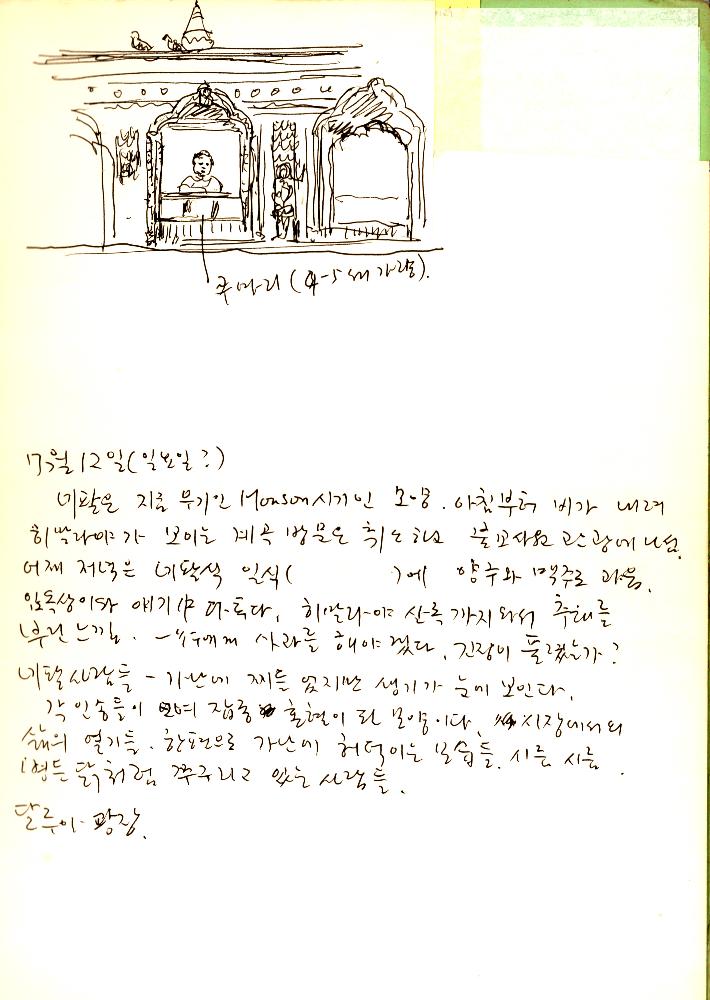 쿠마리 (4-5세 가량).
7월 12일 (일요일?)
네팔은 지금 우기인 Monson시기인 모양. 아침부터 비가 내려
히말라야가 보이는 계곡 방문은 취소하고 불교사원 고스광에 나섬.
어제 저녁은 네팔식 일식( )에 양주와 맥주로 과음.
얘기中 다투다. 히말라야 산록까지 와서 추태를
부린 느낌. 에게 사과를 해야겠다. 긴장이 풀렸는가?
네팔사람들 - 가난에 찌들 었지만 생기가 눈에 보인다.
각 인종들이 섞여 잡종 혼혈이 된 모양이다. 시장에서의
삶의 열기들. 한편으로 가난에 허덕이는 모습들. 시름 시름
병든 닭처럼 쭈구리고 있는 사람들.
광장.